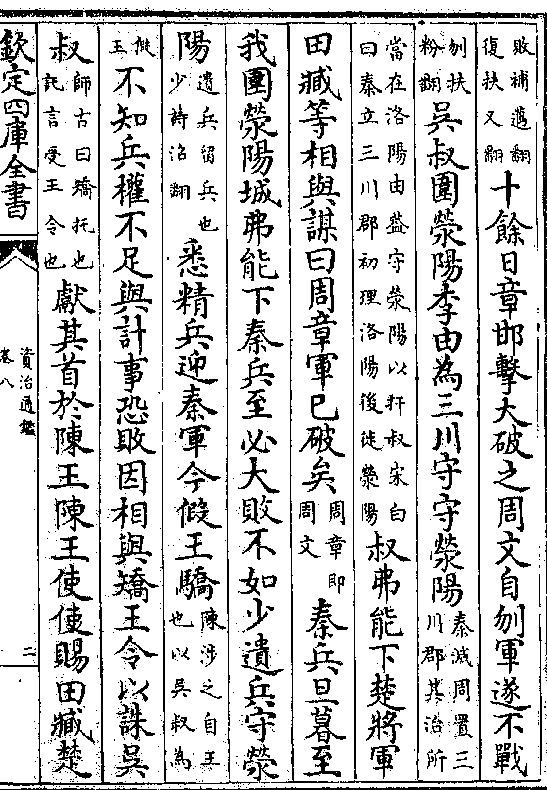 敗補邁翻復扶又翻十餘日章邯擊大破之周文自刎軍遂不戰
刎扶粉翻吳叔圍滎陽李由為三川守守滎陽秦滅周置三川郡其治所
當在洛陽由益守滎陽以扞叔宋白曰秦立三川郡初理洛陽後徙滎陽叔弗能下楚將軍
田臧等相與謀曰周章軍已破矣周章即周文秦兵旦暮至
我圍滎陽城弗能下秦兵至必大敗不如少遺兵守滎
陽遺兵留兵也少詩沼翻悉精兵迎秦軍今假王驕陳涉之自王也以吳叔為
假王不知兵權不足與計事恐敗因相與矯王令以誅吳
叔師古曰矯托也託言受王令也獻其首於陳王陳王使使賜田臧楚
欽定四庫全書
資治通鑑
卷八
二